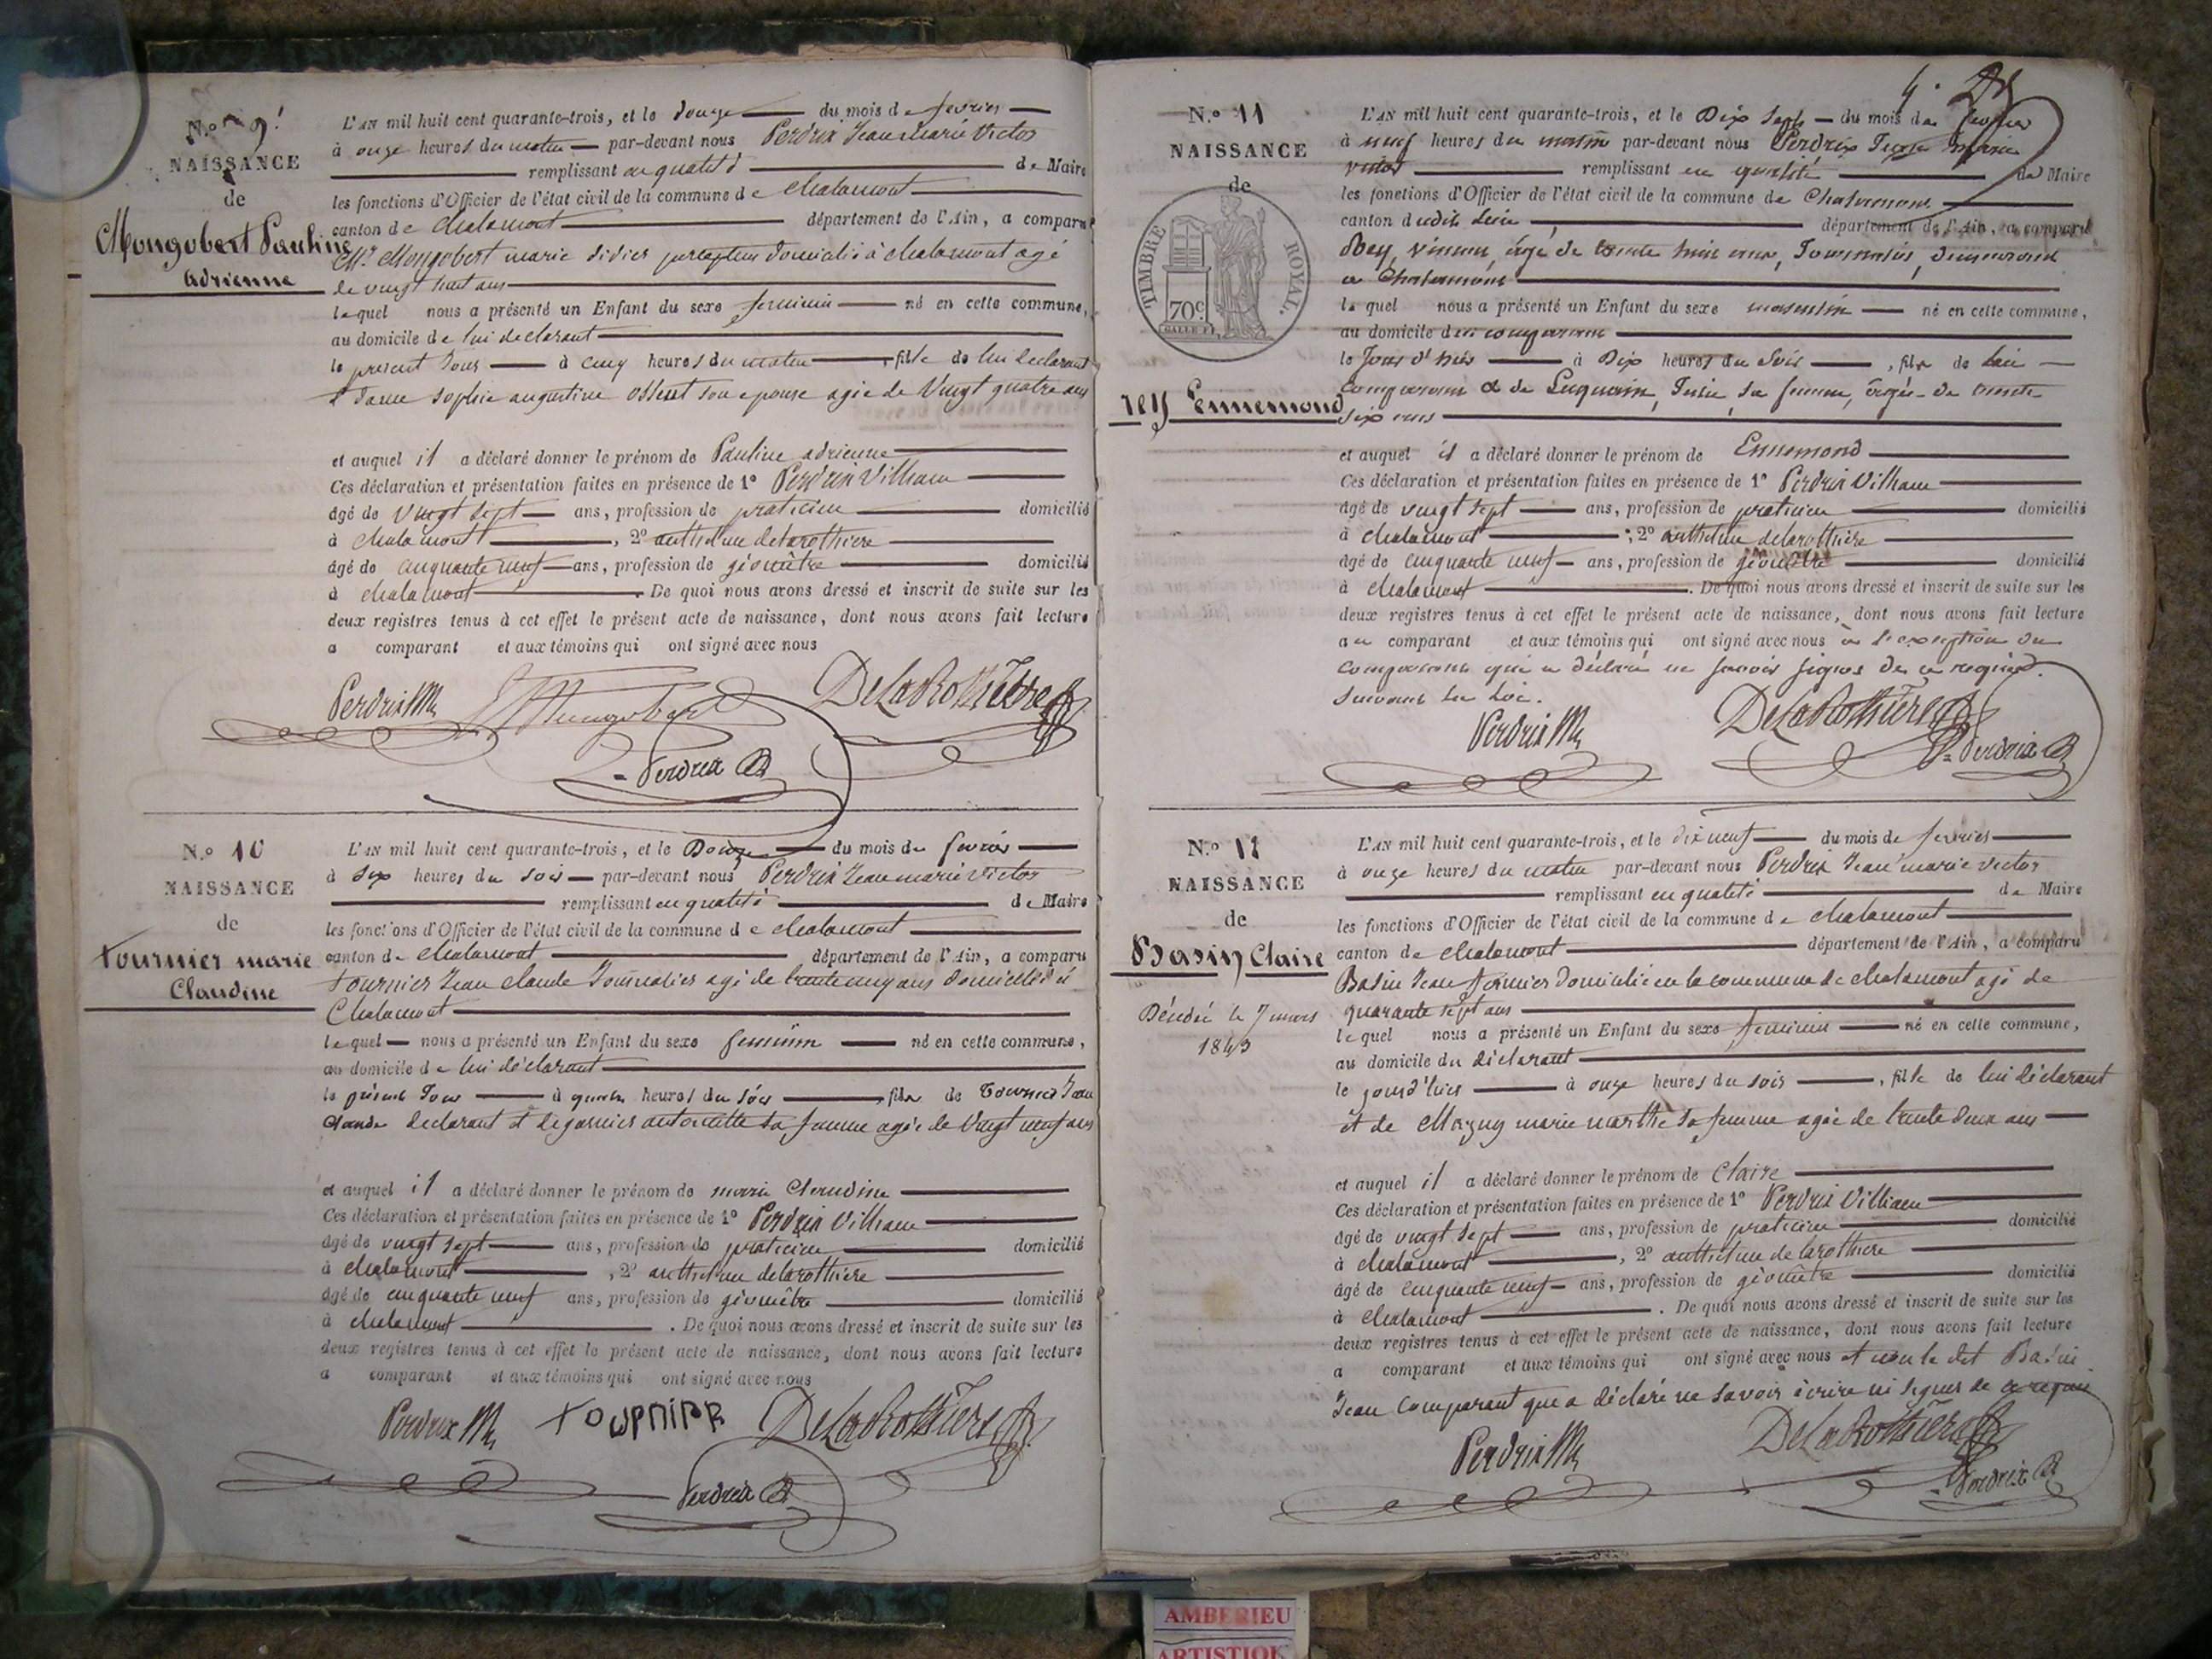 N.º 9
NAISSANCE
de
Mongobert Pauline
Adrienne
L'AN mil huit cent quarante-trois, et le Douze du mois de fevrier
à onze heures du matin par-devant nous Perdrix Jean marie Victor
remplissant en qualité de Maire
les fonctions d'Officier de l'état civil de la commune de chalamont
canton de chalamont département de l'Ain, a comparu
Mr Mongobert marie didier percepteur domicilié à chalamont agé
de vingt huit ans
lequel nous a présenté un Enfant du sexe feminin né en cette commune,
au domicile de lui declarant
le present Jour à cinq heures du matin, fille de lui declarant
et dame sophie augustine son epouse agée de Vingt quatre ans
et auquel il a déclaré donner le prénom de Pauline adrienne
Ces déclaration et présentation faites en présence de 1º Perdrix Villiam
âgé de vingt sept ans, profession de praticien domicilié
à chalamont, 2º anthelme delarothiere
âgé de cinquante neuf ans, profession de géomêtre domicilié
à chalamont. De quoi nous avons dressé et inscrit de suite sur les
deux registres tenus à cet effet le présent acte de naissance, dont nous avons fait lecture
a comparant et aux témoins qui ont signé avec nous
Perdrix Mongobert DeLaRothière
Perdrix
N.º 10
NAISSANCE
de
tournier marie
Claudine
L'AN mil huit cent quarante-trois, et le Douze du mois de fevrier
à six heures du soir par-devant nous Perdrix Jean marie Victor
remplissant en qualité de Maire
les fonctions d'Officier de l'état civil de la commune de chalamont
canton de chalamont département de l'Ain, a comparu
tournier Jean claude Journalier agé de trente cinq ans domicilié à
Chalamont
lequel nous a présenté un Enfant du sexe feminin né en cette commune,
au domicile de lui déclarant
le présent Jour à quatre heures du soir, fille de tournier Jean
claude declarant et antoinette sa femme agée de Vingt neuf ans
et auquel il a déclaré donner le prénom de marie Claudine
Ces déclaration et présentation faites en présence de 1º Perdrix Villiam
âgé de vingt sept ans, profession de praticien domicilié
à chalamont, 2º anthelme delarothiere
âgé de cinquante neuf ans, profession de géomêtre domicilié
à chalamont. De quoi nous avons dressé et inscrit de suite sur les
deux registres tenus à cet effet le présent acte de naissance, dont nous avons fait lecture
a comparant et aux témoins qui ont signé avec nous
Perdrix TOURNIER DeLaRothière
Perdrix
N.º 11
NAISSANCE
de
TIMBRE ROYAL.
70c
rey Ennemond
L'AN mil huit cent quarante-trois, et le Dix Sept du mois de fevrier
à neuf heures du matin par-devant nous Perdrix Jean marie
victor remplissant en qualité de Maire
les fonctions d'Officier de l'état civil de la commune de Chalamont
canton dudit Lieu, département de l'Ain, a comparu
Rey, vincent, âgé de trente huit ans, Journalier, demeurant
a Chalamont
lequel nous a présenté un Enfant du sexe masculin né en cette commune,
au domicile du comparant
le Jour d'hier à Dix heures du Soir, fils de lui
comparant et de Luquain, Julie, sa femme, âgée de trente
six ans
et auquel il a déclaré donner le prénom de Ennemond
Ces déclaration et présentation faites en présence de 1º Perdrix Villiam
âgé de vingt sept ans, profession de praticien domicilié
à chalamont; 2º anthelme delarothière
âgé de cinquante neuf ans, profession de géomètre domicilié
à chalamont. De quoi nous avons dressé et inscrit de suite sur les
deux registres tenus à cet effet le présent acte de naissance, dont nous avons fait lecture
au comparant et aux témoins qui ont signé avec nous à l'exception du
comparant qui a déclaré ne savoir signer de ce requis
suivant la Loi.
Perdrix DeLaRothière
Perdrix
N.º 12
NAISSANCE
de
Basin Claire
Décédée le 7 mars
1843
L'AN mil huit cent quarante-trois, et le dix neuf du mois de fevrier
à onze heures du matin par-devant nous Perdrix Jean marie victor
remplissant en qualité de Maire
les fonctions d'Officier de l'état civil de la commune de chalamont
canton de chalamont département de l'Ain, a comparu
Basin Jean fermier domicilié en la commune de chalamont agé de
quarante sept ans
lequel nous a présenté un Enfant du sexe feminin né en cette commune,
au domicile du déclarant
le jour d'hier à onze heures du soir, fille de lui déclarant
et de marie marthe sa femme agée de trente deux ans
et auquel il a déclaré donner le prénom de Claire
Ces déclaration et présentation faites en présence de 1º Perdrix Villiam
âgé de vingt sept ans, profession de praticien domicilié
à chalamont, 2º anthelme de larothiere
âgé de cinquante neuf ans, profession de géomètre domicilié
à chalamont. De quoi nous avons dressé et inscrit de suite sur les
deux registres tenus à cet effet le présent acte de naissance, dont nous avons fait lecture
a comparant et aux témoins qui ont signé avec nous et non le dit Basin
Jean comparant qui a déclaré ne savoir écrire ni signer de ce requis
Perdrix DeLaRothière
Perdrix
AMBERIEU
ARTISTIQ